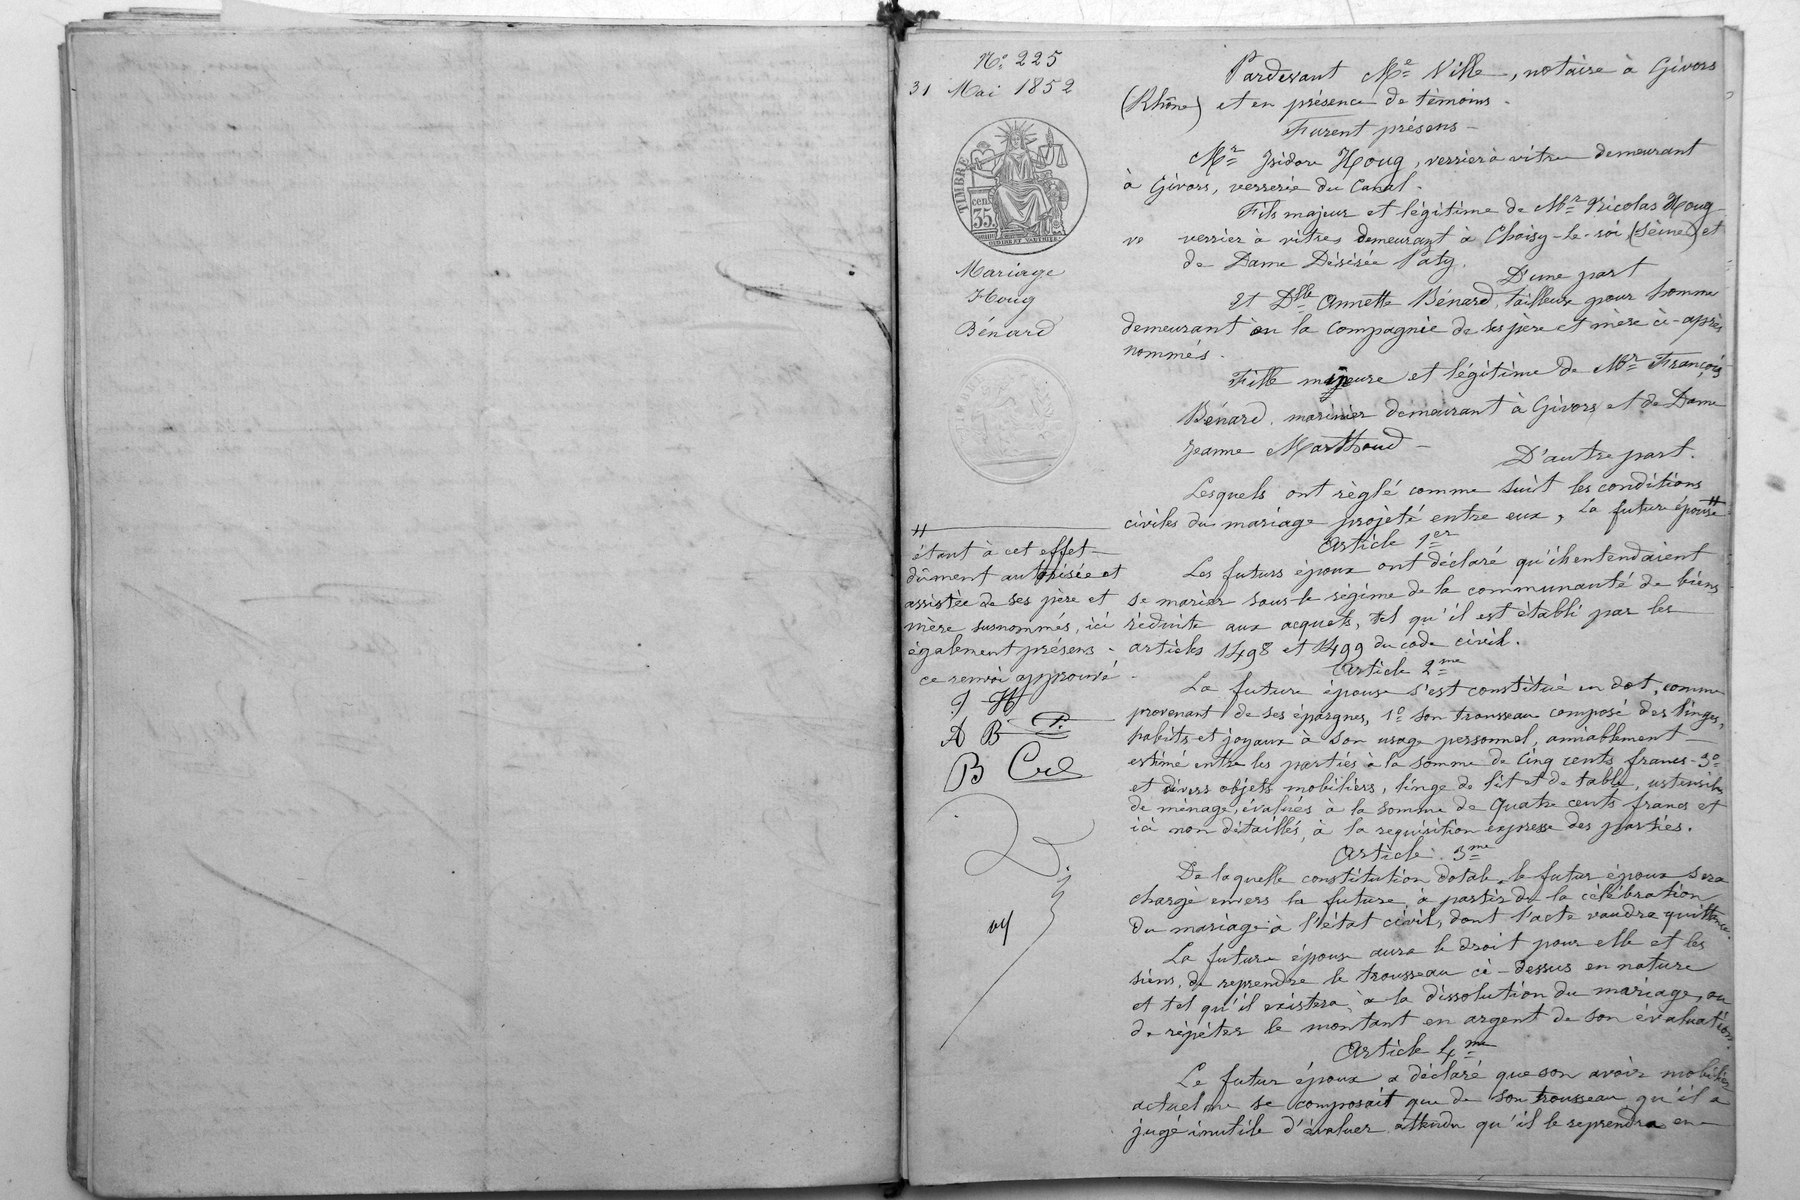 N.° 225
31 Mai 1852
TIMBRE
cent.
35.
Mariage
Houg
Bénard
Pardevant Me Ville, notaire à Givors
(Rhône) et en présence de témoins.
Furent présens -
Mr Isidore Houg, verrier à vitre demeurant
à Givors, verrerie du Canal.
Fils majeur et légitime de Mr Nicolas Houg
verrier à vitres demeurant à Choisy-le-roi (Seine) et
de Dame Désirée Paty.
D'une part
Et Dlle Annette Bénard, tailleuse pour homme
demeurant en la compagnie de ses père et mère ci-après
nommés.
Fille majeure et légitime de Mr François
Bénard, marinier demeurant à Givors et de Dame
Jeanne Marthoud -
D'autre part.
Lesquels ont règlé comme suit les conditions
civiles du mariage projeté entre eux, La future épouse #
#
étant à cet effet
dûment autorisée et
assistée de ses père et
mère susnommés, ici
également présens -
ce renvoi approuvé.
J H
A B P.
B
Article 1er
Les futurs époux ont déclaré qu'ils entendaient
se marier sous le régime de la communauté de biens
réduite aux acquets, tel qu'il est établi par les
articles 1498 et 1499 du code civil.
Article 2me
La future épouse s'est constitué en dot, comme
provenant de ses épargnes, 1° son trousseau composé des linges,
habits et joyaux à son usage personnel, amiablement
estimé entre les parties à la somme de cinq cents francs - 3°
et divers objets mobiliers, linge de lit et de table, ustensiles
de ménage, évalués à la somme de quatre cents francs et
ici non détaillés, à la requisition expresse des parties.
Article 3me
De laquelle constitution dotale le futur époux sera
chargé envers la future, à partir de la célébration
du mariage à l'état civil, dont l'acte vaudra quittance.
La future épouse aura le droit pour elle et les
siens, de reprendre le trousseau ci-dessus en nature
et tel qu'il existera à la dissolution du mariage, ou
de répéter le montant en argent de son évaluation.
Article 4me
Le futur époux a déclaré que son avoir mobilier
actuel ne se composait que de son trousseau qu'il a
jugé inutile d'évaluer attendu qu'il le reprendra en